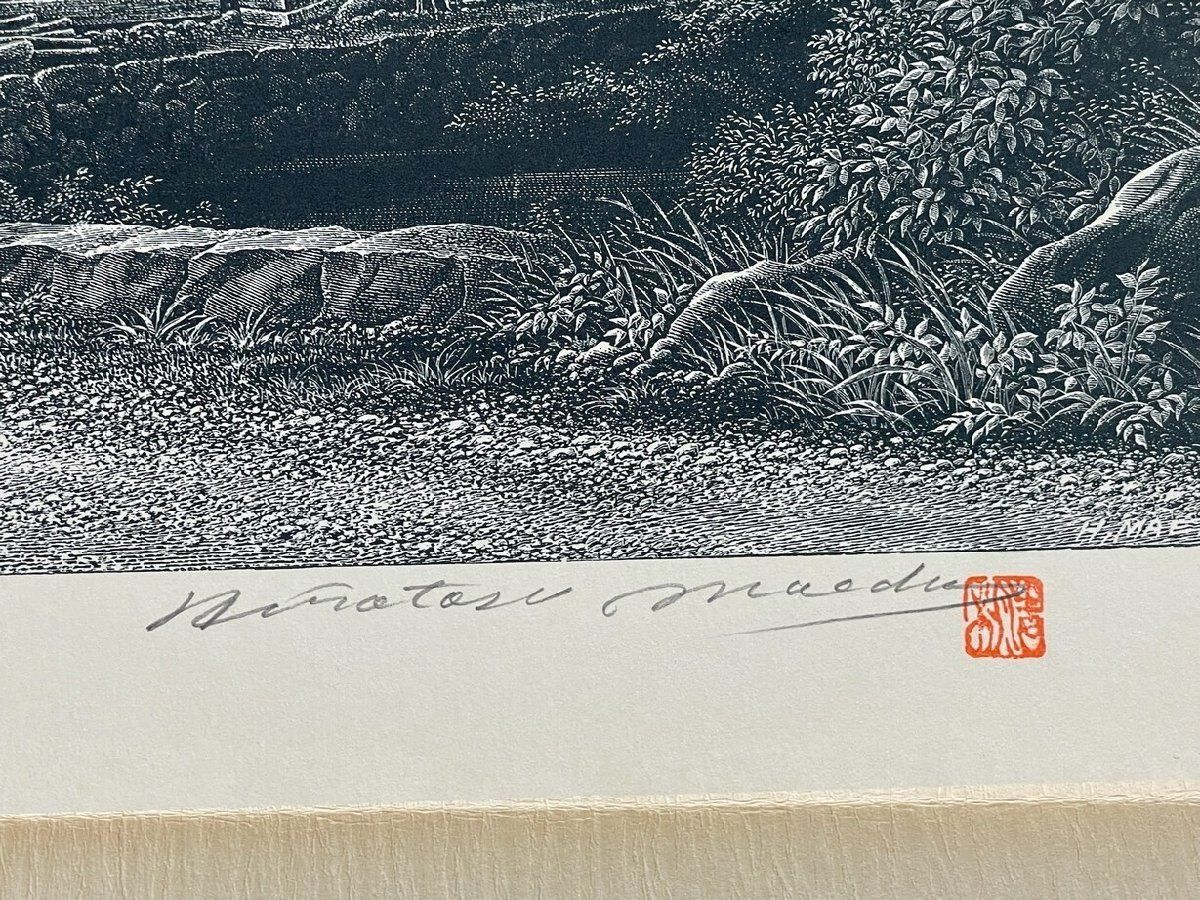 H, MAE
Hirotosi Maeda